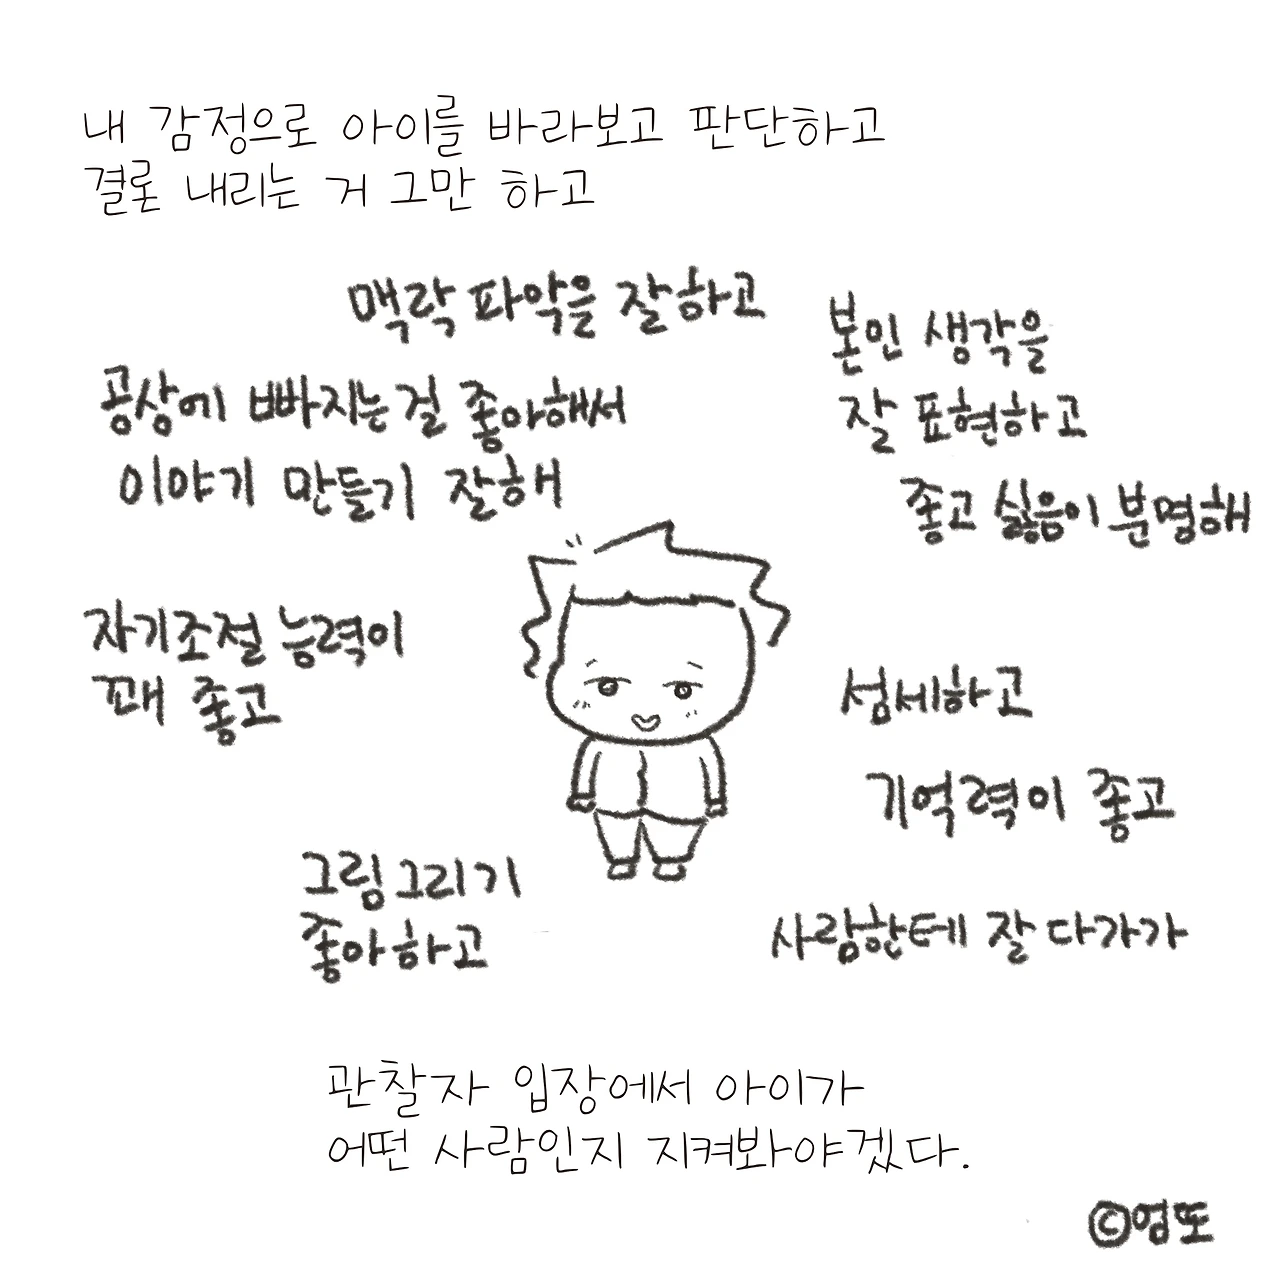 내 감정으로 아이를 바라보고 판단하고
결론 내리는 거 그만 하고
맥락 파악을 잘하고
공상에 빠지는걸 좋아해서
이야기 만들기 잘해
본인 생각을
잘 표현하고
좋고 싫음이 분명해
자기조절 능력이
꽤 좋고
섬세하고
기억력이 좋고
그림그리기
좋아하고
사람한테 잘 다가가
관찰자 입장에서 아이가
어떤 사람인지 지켜봐야겠다.
©영또